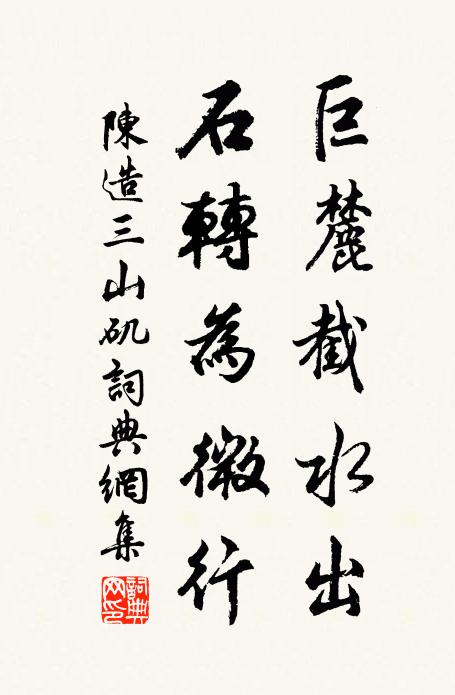 巨麓截水出
石轉為微行
陳造三山矶詞典網集
詞典網印